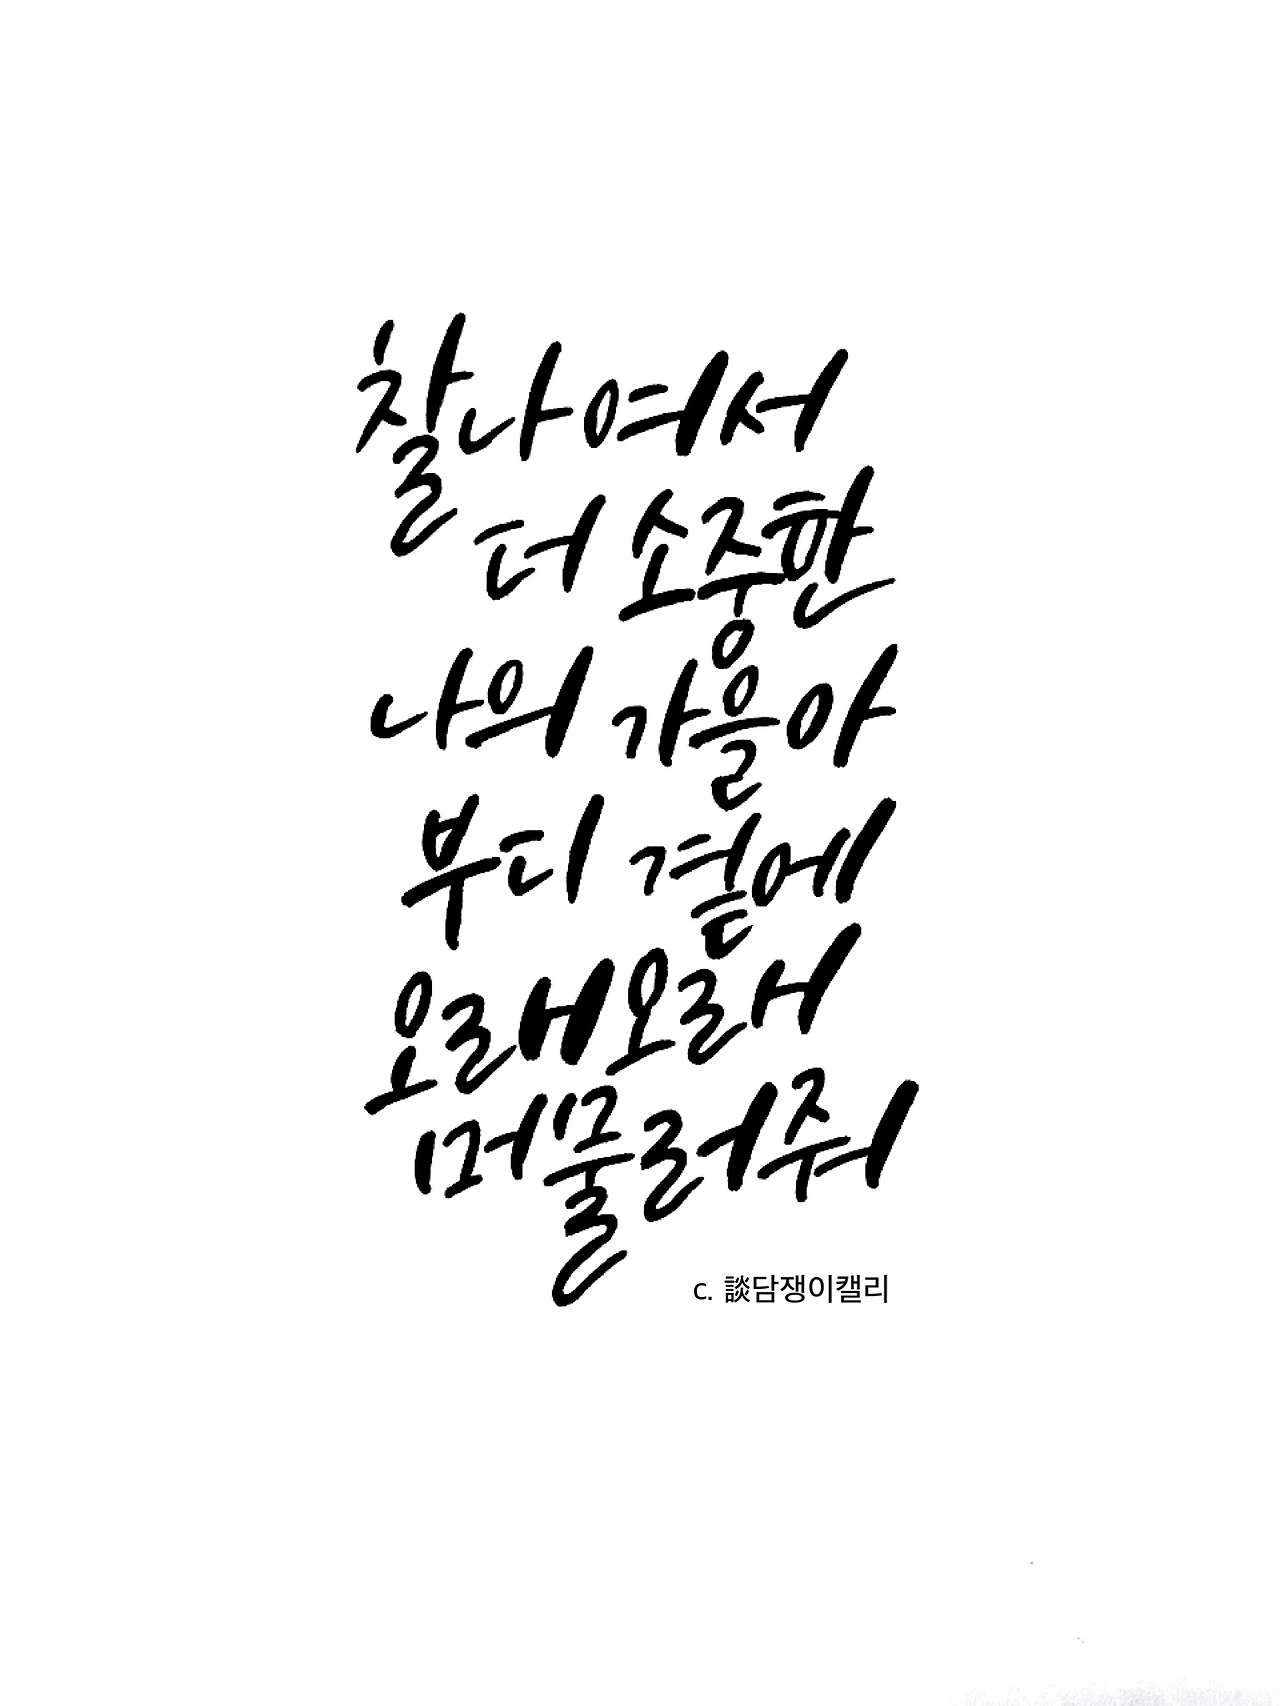 찰나여서
더 소중한
나의 가을아
부디 곁에
오래오래
머물러줘
c. 談담쟁이캘리